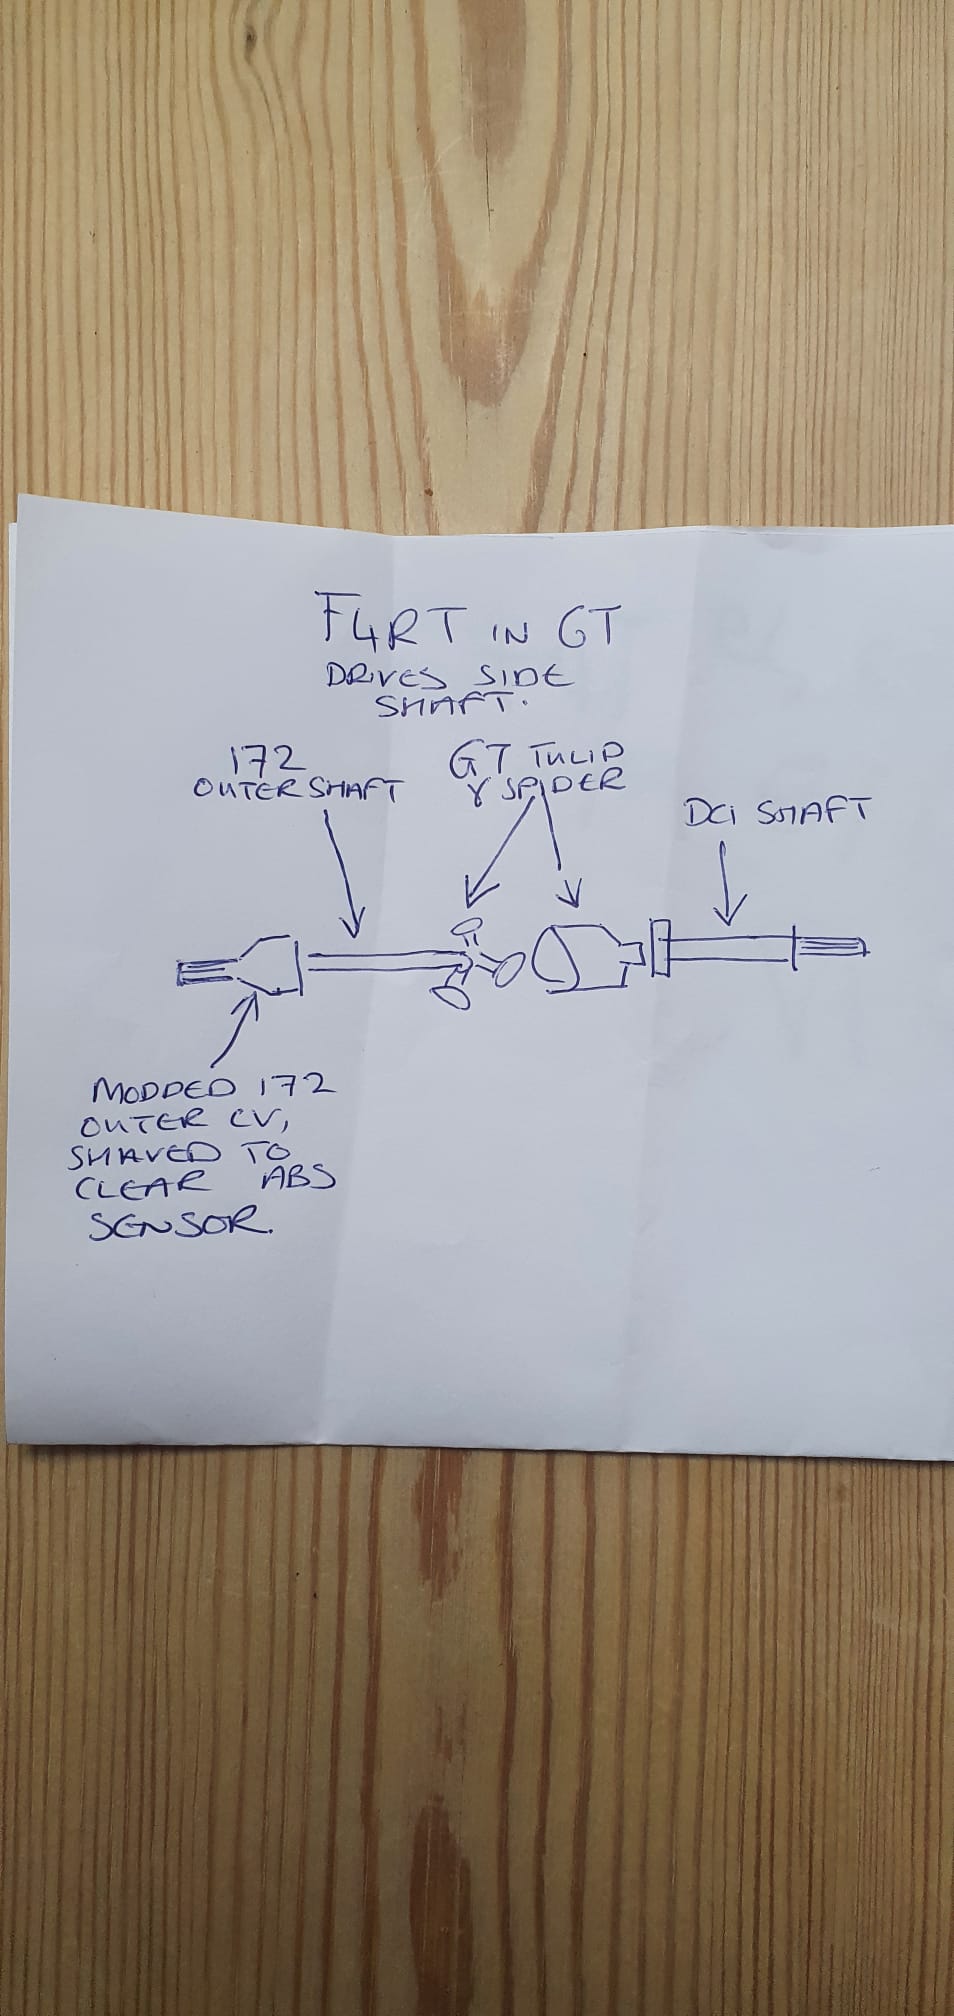 F4RT IN GT
DRIVES SIDE
SHAFT.
172
OUTER SHAFT
GT TULIP
& SPIDER
DCi SHAFT
MODDED 172
OUTER CV,
SHAVED TO
CLEAR ABS
SENSOR.